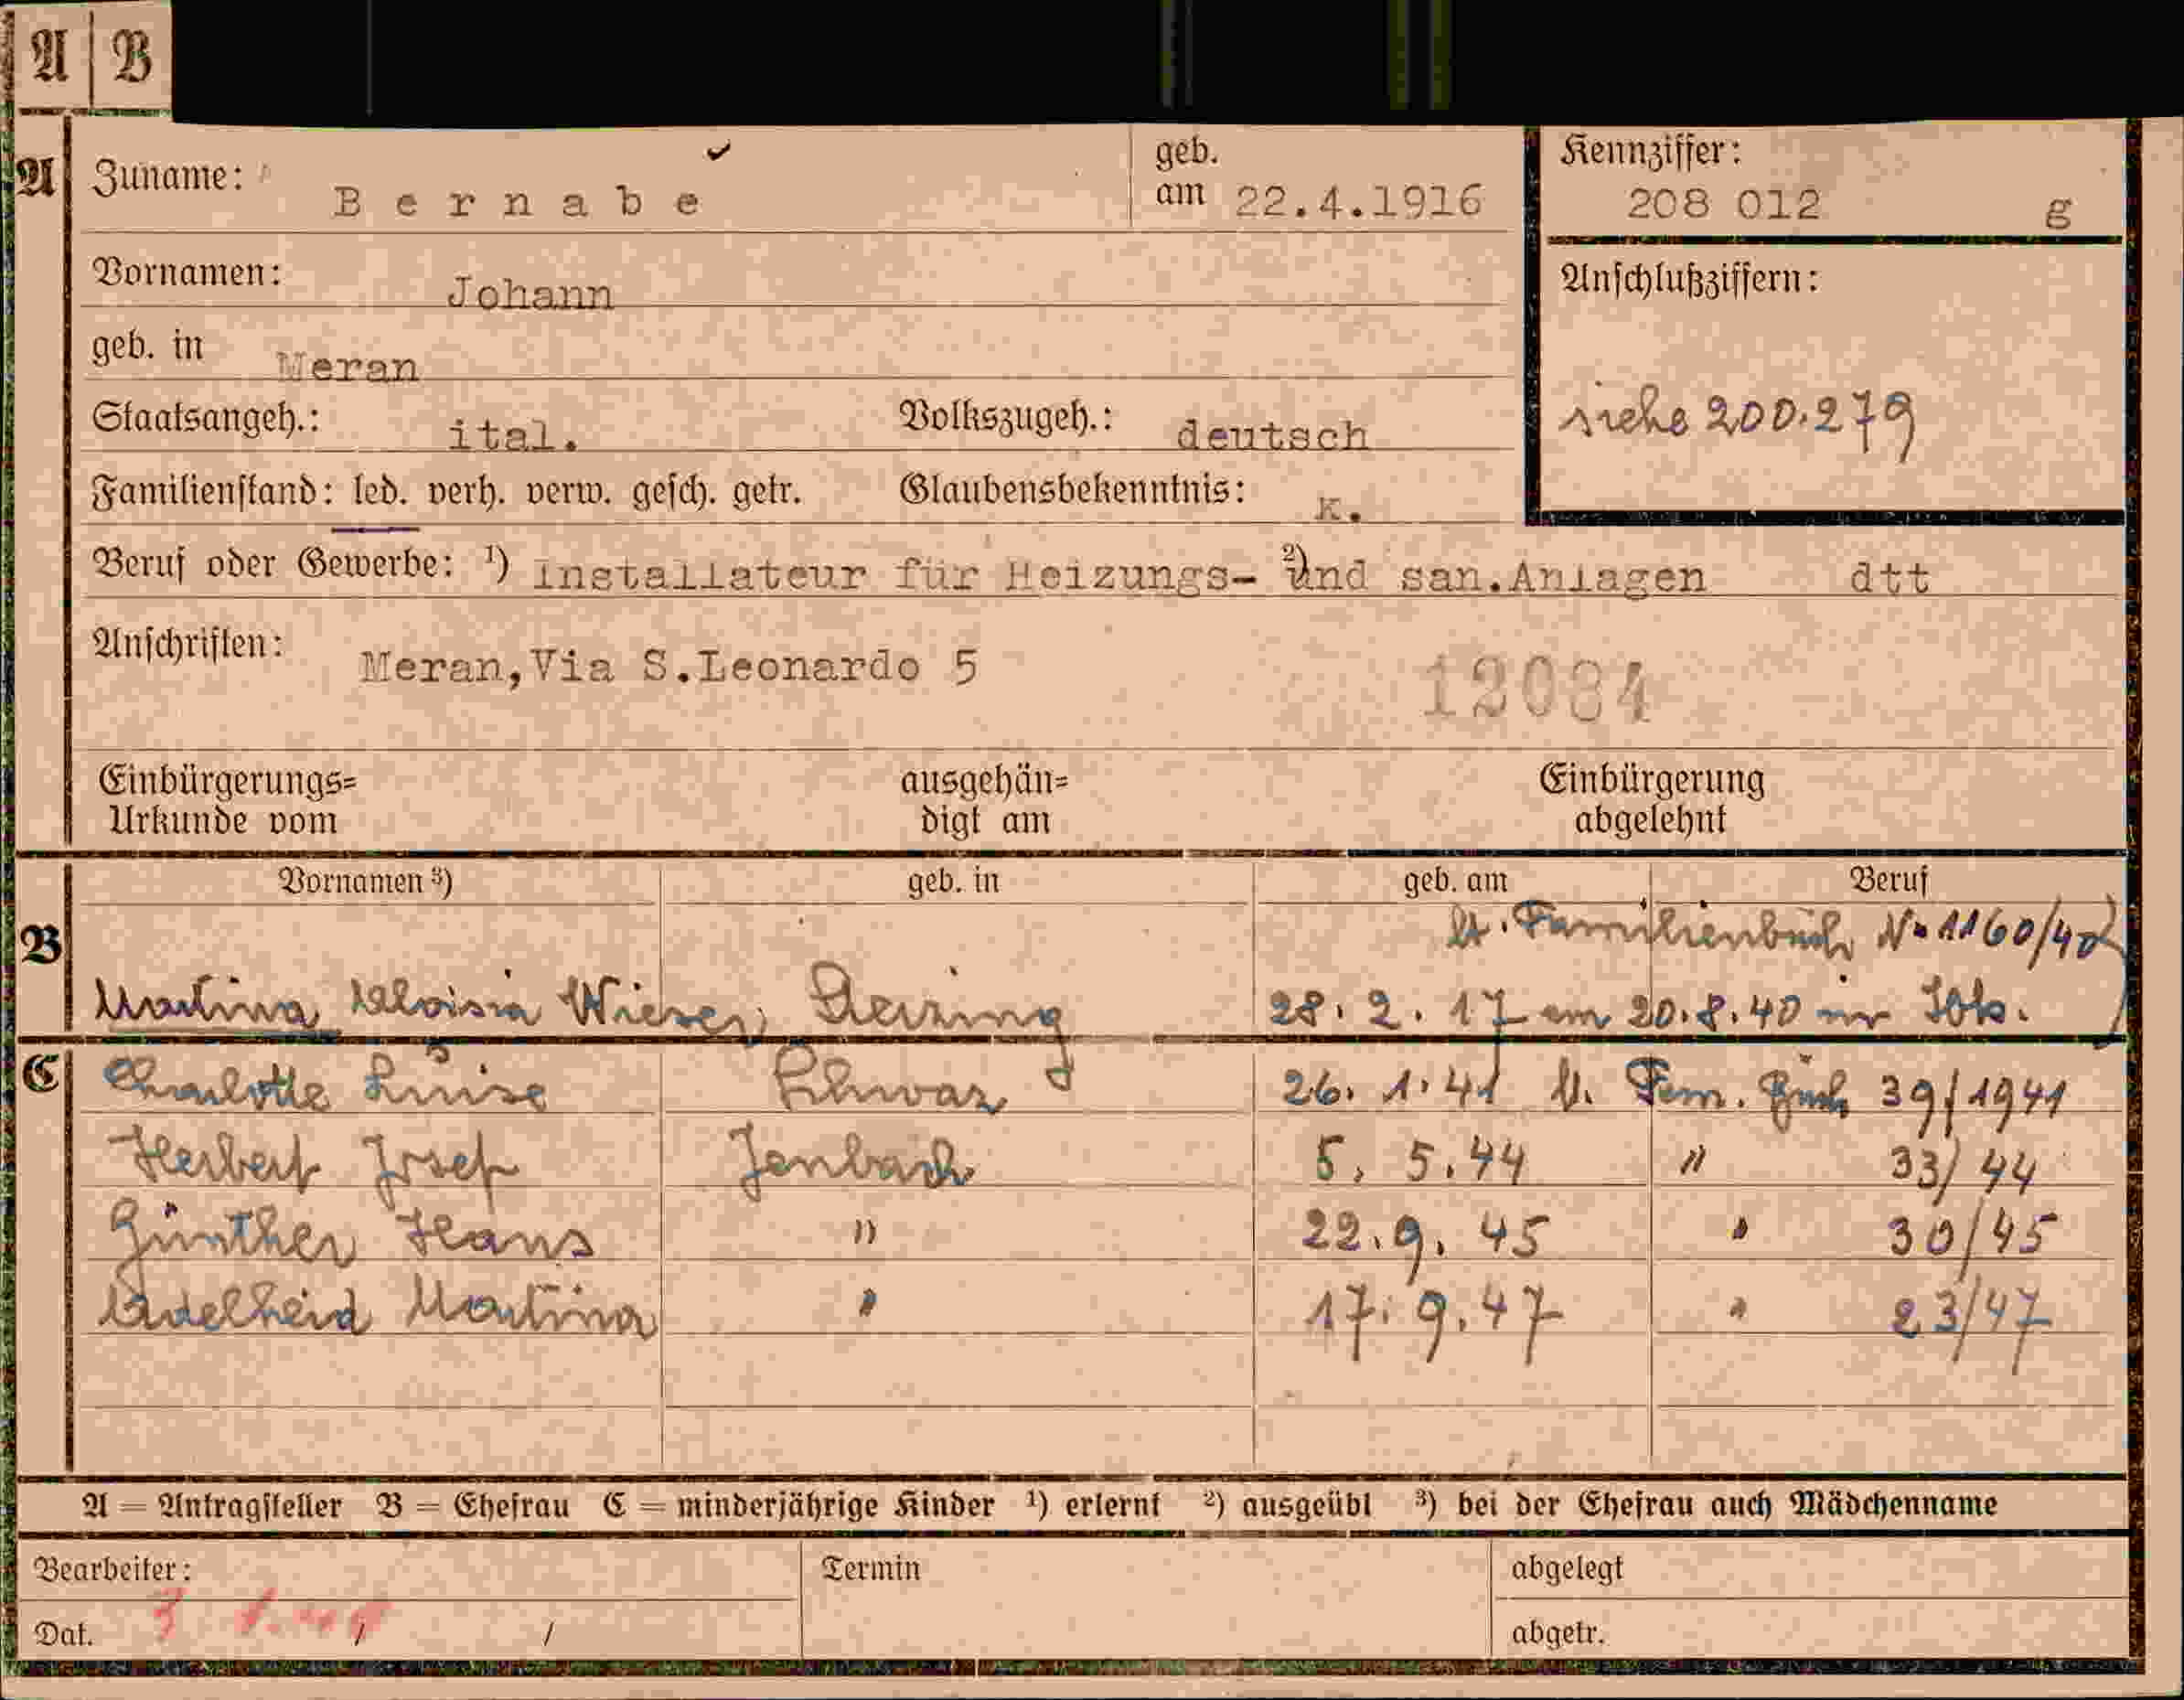 A B
A Zuname: Bernabe geb. am 22.4.1916
Kennziffer: 208 012 g
Vornamen: Johann
geb. in Meran
Anschlußziffern:
siehe 200.279
Staatsangeh.: ital. Volkszugeh.: deutsch
Familienstand: led. verh. verw. gesch. getr. Glaubensbekenntnis: K.
Beruf oder Gewerbe: ¹) Installateur für Heizungs- ²) und san.Anlagen dtt
Anschriften: Meran,Via S.Leonardo 5
12084
Einbürgerungs= ausgehän= Einbürgerung
Urkunde vom digt am abgelehnt
Vornamen ³) geb. in geb. am Beruf
B lt. Familienbuch No 1160/40
Martina Aloisia Wieser, 28.2.17 am 20.8.40 in
C Charlotte Luise Schwaz 26.1.41 lt. Fam. Buch 39/1941
Herbert Josef Jenbach 5.5.44 " 33/44
Günther Hans " 22.9.45 " 30/45
Adelheid Martina " 17.9.47 " 23/47
A = Antragsteller B = Ehefrau C = minderjährige Kinder ¹) erlernt ²) ausgeübt ³) bei der Ehefrau auch Mädchenname
Bearbeiter: Termin abgelegt
Dat. / / abgetr.